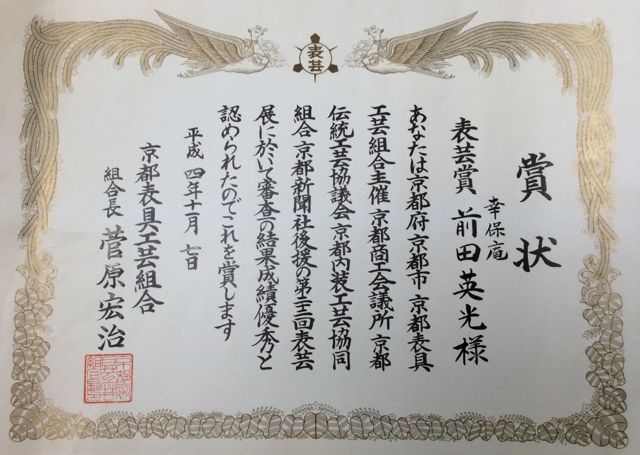 表芸
賞状
幸保庵
表芸賞 前田英光様
あなたは京都府 京都市 京都表具
工芸組合主催 京都商工会議所 京都
伝統工芸協議会 京都内装工芸協同
組合 京都新聞社後援の第二十三回表芸
展に於いて審査の結果成績優秀と
認められたのでこれを賞します
平成四年十一月七日
京都表具工芸組合
組合長 菅原宏治